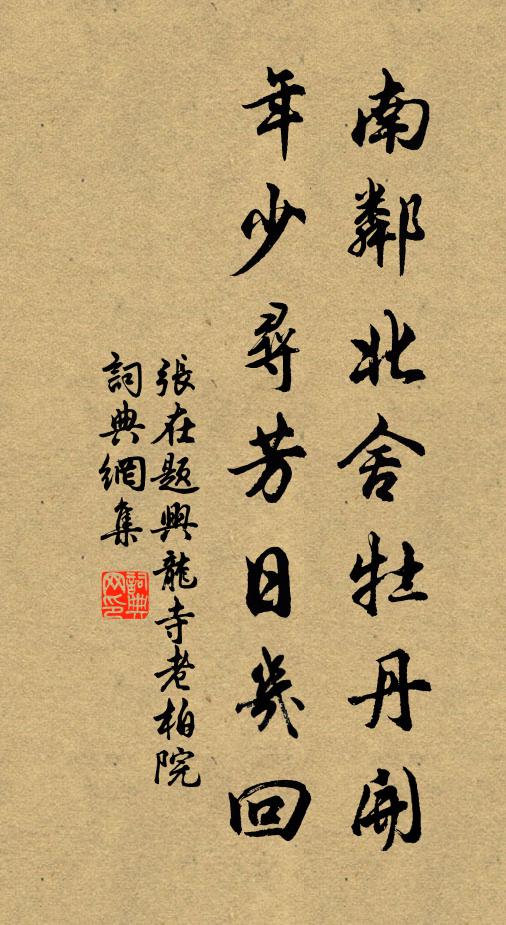 南鄰北舍牡丹開
年少尋芳日幾回
張在題興龍寺老柏院
詞典網集
詞典网印